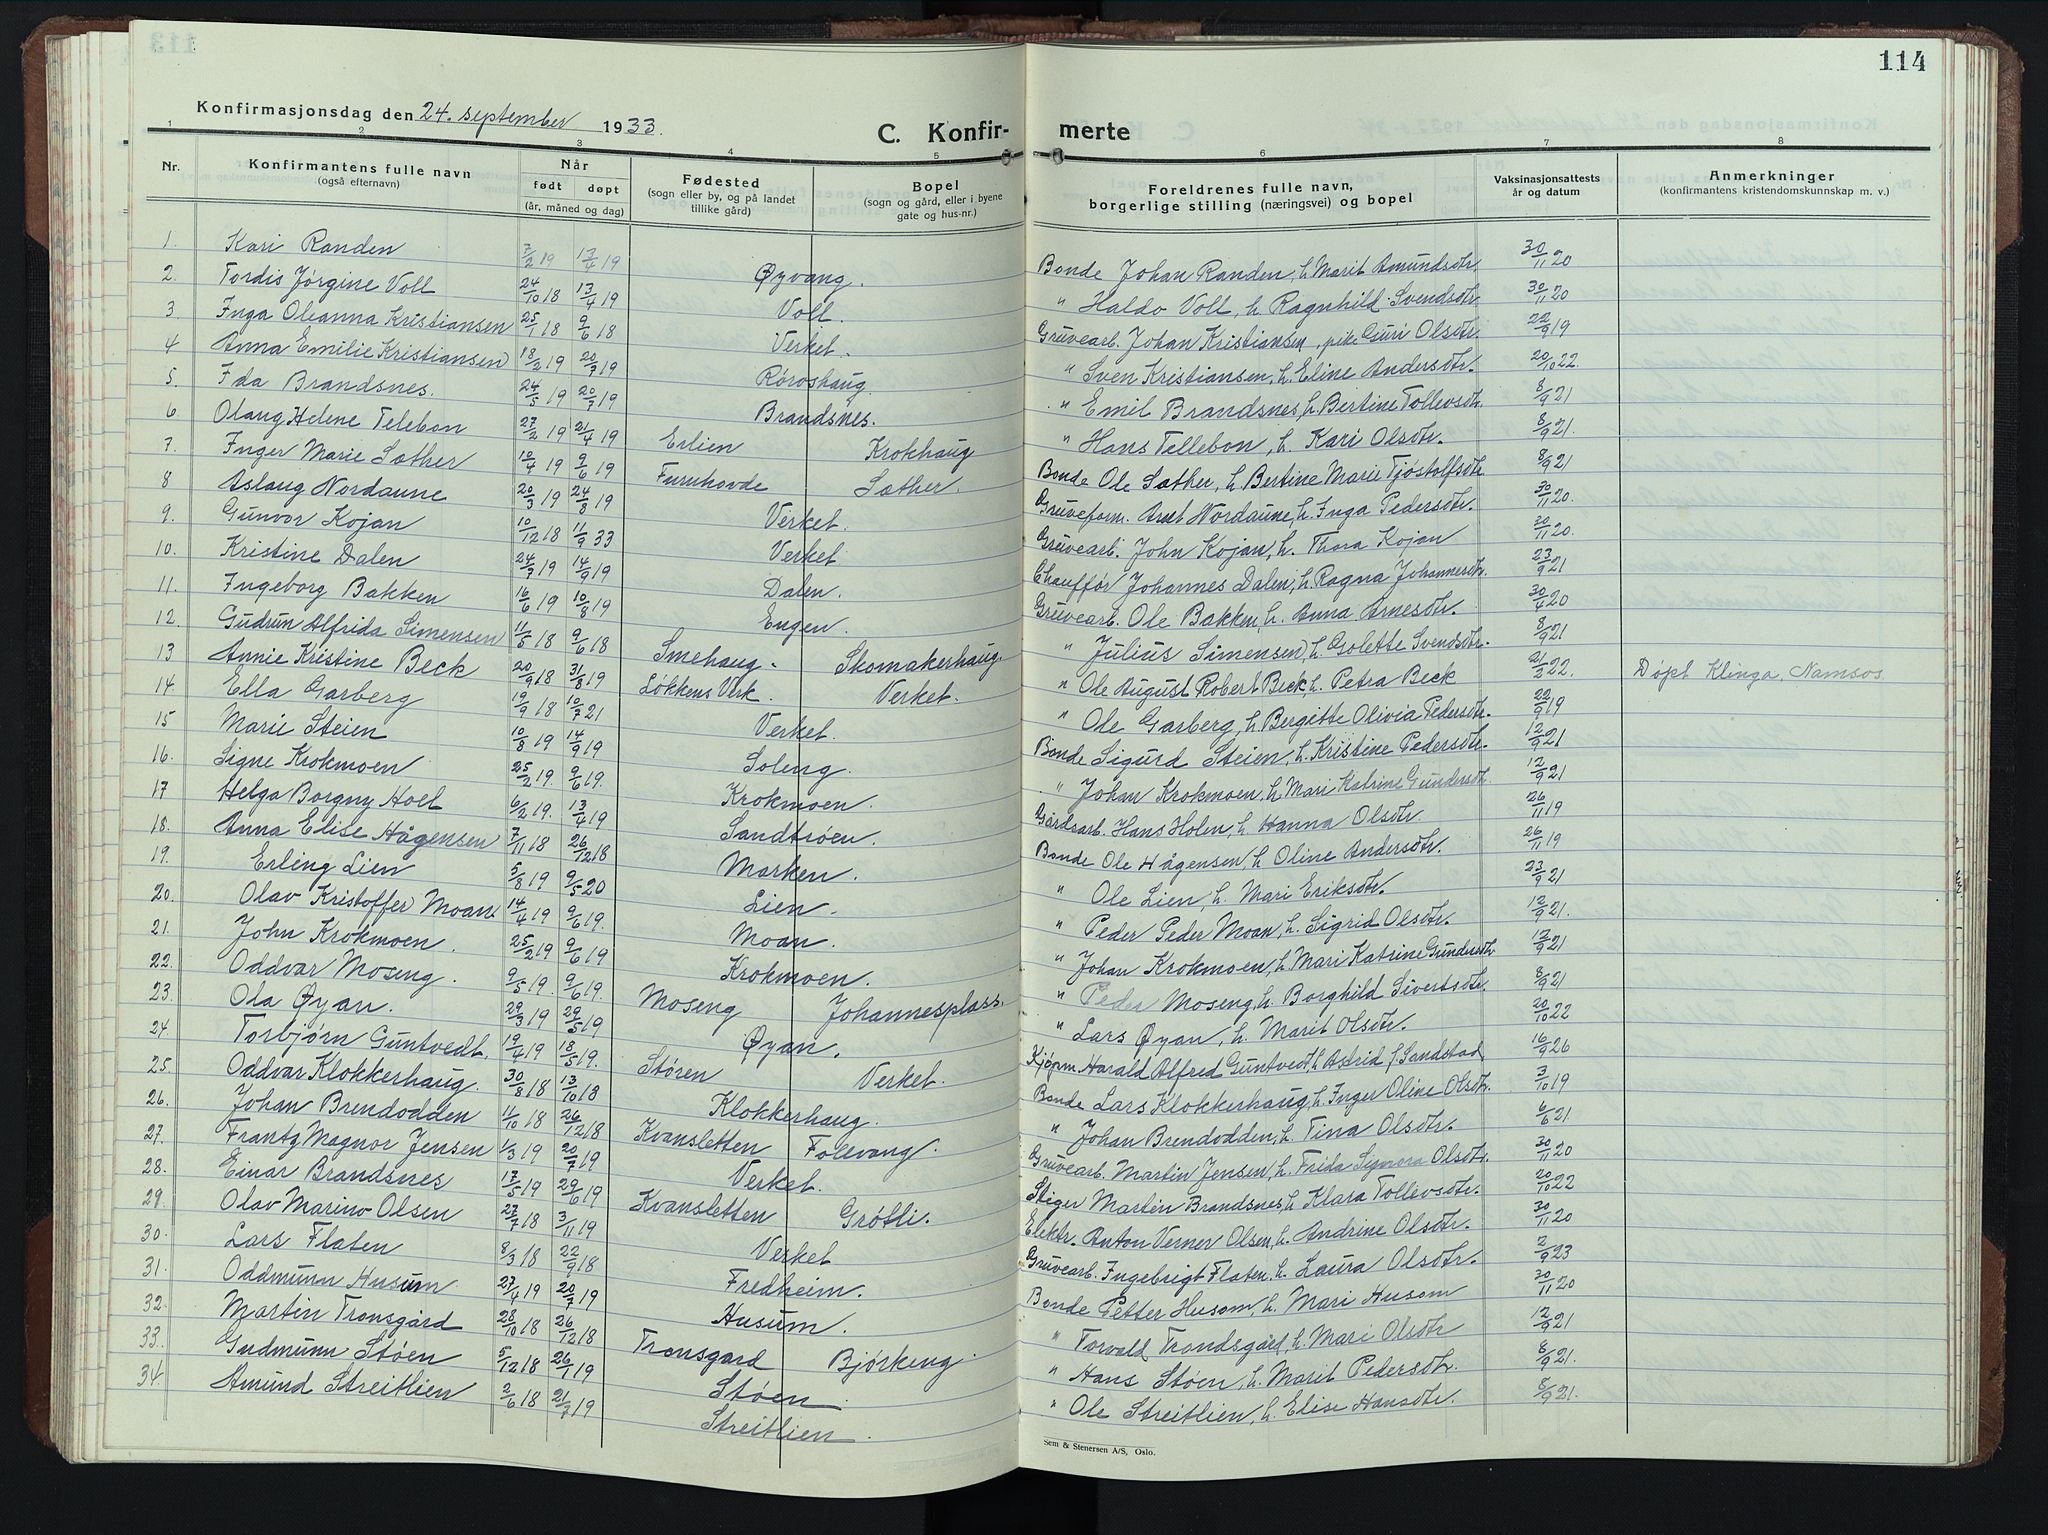 114
Konfirmasjonsdag den 24. september 1933.
C. Konfir- merte
1 2 3 4 5 6 7 8
Nr. Konfirmantens fulle navn (også efternavn) Når født døpt (år, måned og dag) Fødested (sogn eller by, og på landet tillike gård) Bopel (sogn og gård, eller i byene gate og hus-nr.) Foreldrenes fulle navn, borgerlige stilling (næringsvei) og bopel Vaksinasjonsattests år og datum Anmerkninger (konfirmantens kristendomskunnskap m. v.)
1. Kari Randen 7/2 19 13/4 19 Øyvang. Bonde Johan Randen, h. Marit Amundsdtr. 30/11 20
2. Tordis Jørgine Voll 24/10 18 13/4 19 Voll. " Haldo Voll, h. Ragnhild Svendsdtr. 30/11 20
3 Inga Oleanna Kristiansen 25/1 18 9/6 18 Verket. Gruvearb. Johan Kristiansen, pike Guri Olsdtr. 22/9 19
4 Anna Emilie Kristiansen 18/2 19 20/7 19 Røroshaug. " Sven Kristiansen, h. Eline Andersdtr. 20/10 22.
5. Ida Brandsnes. 24/5 19 20/7 19 Brandsnes. " Emil Brandsnes, h. Bertine Tollevsdtr. 8/9 21
6 Olaug Helene Telebon 27/2 19 21/4 19 Erlien Krokhaug " Hans Tellebon, h. Kari Olsdtr. 8/9 21.
7. Inger Marie Sæther 10/4 19 9/6 19 Furuhovde Sæther. Bonde Ole Sæther, h. Bertine Marie Tjøstolfsdtr. 8/9 21
8 Aslaug Nordaune 20/3 19 24/8 19 Verket. Gruveform. Axel Nordaune, h. Inga Pedersdtr. 30/11 20.
9. Gunvor Kojan 10/12 18 11/9 33 Verket Gruvearb. John Kojan, h. Thora Kojan 30/11 20.
10. Kristine Dalen 24/7 19 14/9 19 Dalen. Chauffør Johannes Dalen, h. Ragna Johannesdtr. 23/9 21
11. Ingeborg Bakken 16/6 19 10/8 19 Engen. Gruvearb. Ole Bakken, h. Anna Arnesdtr. 30/4 20
12. Gudrun Alfrida Simensen 11/5 18 9/6 18 Smehaug. Skomakerhaug. " Julius Simensen, h. Golette Svendsdtr. 8/9 21
13 Annie Kristine Beck 20/9 18 31/8 19 Løkkens Verk. Verket. " Ole August Robert Beck, h. Petra Beck 21/2 22. Døpt Klinga, Namsos
14. Ella Garberg 19/9 18 10/7 21 Verket. " Ole Garberg, h. Bergitte Olivia Pedersdtr. 22/9 19
15 Marie Steien 10/8 19 14/9 19 Soleng. Bonde Sigurd Steien, h. Kristine Pedersdtr. 12/9 21
16. Signe Krokmoen 25/2 19. 9/6 19. Krokmoen. " Johan Krokmoen, h. Mari Katrine Gundersdtr. 12/9 21
17 Helga Borgny Holt 6/2 19. 13/4 19 Sandtrøen. Gårdsarb. Hans Holen, h. Hanna Olsdtr. 26/11 19
18. Anna Elise Hågensen 7/11 18 26/12 18 Marken. Bonde Ole Hågensen, h. Oline Andersdtr. 26/11 19
19. Erling Lien 5/8 19 9/5 20 Lien. " Ole Lien, h. Mari Eriksdtr. 23/9 21
20. Olav Kristoffer Moan 14/4 19 9/6 19. Moan. " Peder Peder Moan, h. Sigrid Olsdtr. 12/9 21.
21. John Krokmoen. 25/2 19 9/6 19 Krokmoen. " Johan Krokmoen, h. Mari Katrine Gundersdtr 12/9 21
22. Oddvar Moseng. 9/5 19. 9/6 19. Moseng Johannesplass. " Peder Moseng, h. Borghild Sivertsdtr. 8/9 21
23. Ola Øyan. 29/3 19 29/5 19 Øyan. " Lars Øyan, h. Marit Olsdtr. 20/10 22
24 Torbjørn Guntvedt. 19/4 19 18/5 19. Støren Verket. Kjøpm. Harald Alfred Guntvedt, h. Astrid f. Sandstad 16/9 26
25. Oddvar Klokkerhaug. 30/8 18 13/10 18 Klokkerhaug. Bonde Lars Klokkerhaug, h. Inger Oline Olsdtr. 3/10 19
26. Johan Brendodden 11/10 18 26/12 18 Kvansletten Folevang. " Johan Brendodden, h. Tina Olsdtr. 6/6 21
27. Frantz Magnor Jensen 1/3 19 20/7 19 Verket. Gruvearb. Martin Jensen, h. Frida Signora Olsdtr. 30/11 20
28. Einar Brandsnes 17/5 19 29/6 19 Kvansletten Grøtli. Stiger Martin Brandsnes, h. Klara Tollevsdtr. 20/10 22
29. Olav Marino Olsen 27/7 18 3/11 19 Verket Elektr. Anton Verner Olsen, h. Andrine Olsdtr. 30/11 20
30. Lars Flaten 8/3 18 22/9 18 Fredheim. Gruvearb. Ingebrigt Flaten, h. Laura Olsdtr. 2/9 23
31. Oddmunn Husum 27/4 19 20/7 19 Husum. Bonde Petter Husom, h. Mari Husom 30/11 20
32. Martin Tronsgård 28/10 18 26/12 18 Tronsgard Bjørkeng. " Torvald Trondsgård, h. Mari Olsdtr 12/9 21
33. Gudmunn Støen 5/12 18 26/1 19 Støen " Hans Støen, h. Marit Pedersdtr. 8/9 21.
34. Amund Streitlien 2/6 18 21/7 19 Streitlien. " Ole Streitlien, h. Elise Hansdtr. 8/9 21.
Sem & Stenersen A/S, Oslo.